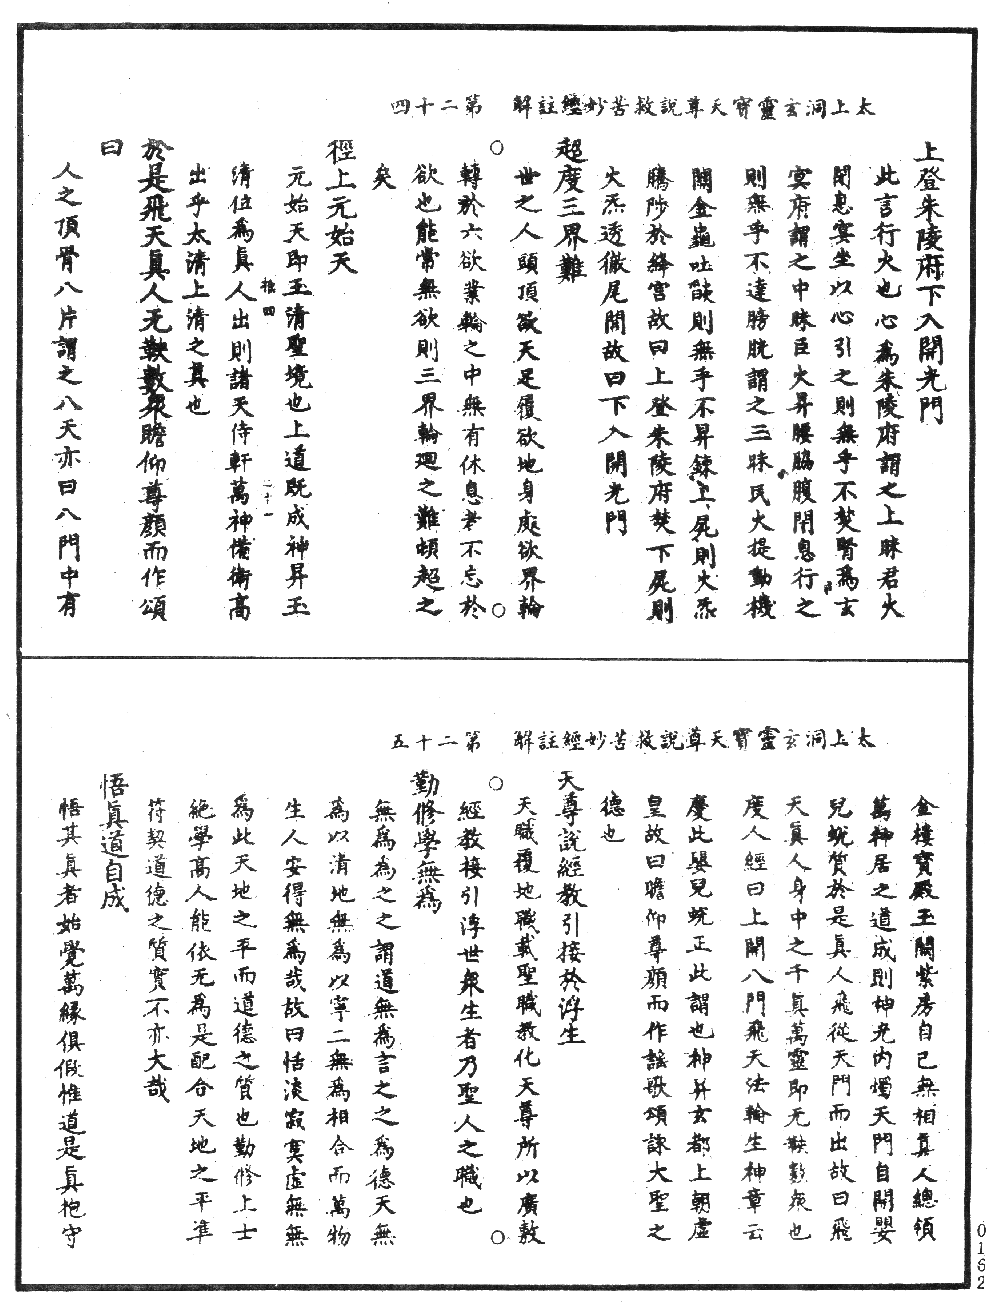 太上洞玄靈寶天尊說救苦妙經註解　第二十四
上登朱陵府下入開光門
此言行火也心爲朱陵府謂之上昧君火
閉息冥坐以心引之則無乎不焚腎爲玄
冥府謂之中昧臣火昇腰脇腹閉息行之
則無乎不達膀胱謂之三昧民火提動機
關金龜吐燄則無乎不昇鍊上屍則火炁
騰陟於絳宮故曰上登朱陵府焚下屍則
火炁透徹尾閭故曰下入開光門
超度三界難
世之人頭頂欲天足履欲地身處欲界輪
轉於六欲業輪之中無有休息者不忘於
欲也能常無欲則三界輪廻之難頓超之
矣
徑上元始天
元始天即玉清聖境也上道既成神昇玉
清位爲眞人出則諸天侍軒萬神備衛高
出乎太清上清之眞也
於是飛天眞人无鞅數衆瞻仰尊顏而作頌
曰
人之頂骨八片謂之八天亦曰八門中有
二十一
太上洞玄靈寶天尊說救苦妙經註解　第二十五
金樓寶殿玉闕紫房自己無相眞人總領
萬神居之道成則神光內燭天門自開嬰
兒蛻質於是眞人飛從天門而出故曰飛
天眞人身中之千眞萬靈即无鞅數衆也
度人經曰上開八門飛天法輪生神章云
慶此嬰兒蛻正此謂也神昇玄都上朝虛
皇故曰瞻仰尊顏而作謠歌頌詠大聖之
德也
天尊說經教引接於浮生
天職覆地職載聖職教化天尊所以廣敷
經教接引浮世衆生者乃聖人之職也
勤修學無爲
無爲爲之之謂道無爲言之之爲德天無
爲以清地無爲以寧二無爲相合而萬物
生人安得無爲哉故曰恬淡寂寞虛無無
爲此天地之平而道德之質也勤修上士
絕學高人能依无爲是配合天地之平準
符契道德之質實不亦大哉
悟眞道自成
悟其眞者始覺萬緣俱假惟道是眞抱守
0162